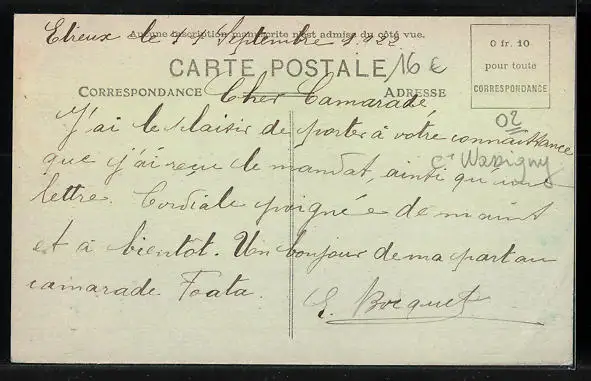 Etreux le 11 Septembre 1922
Aucune inscription manuscrite n'est admise du côté vue.
CARTE POSTALE
16 €
0 fr. 10
pour toute
CORRESPONDANCE
CORRESPONDANCE
ADRESSE
Cher Camarade
02
J'ai le plaisir de porter à votre connaissance
que j'ai reçu le mandat, ainsi qu'une
Cn Wassigny
lettre. Cordiale poignée de main
et à bientôt. Un bonjour de ma part au
camarade Foata.
E. Bocquet